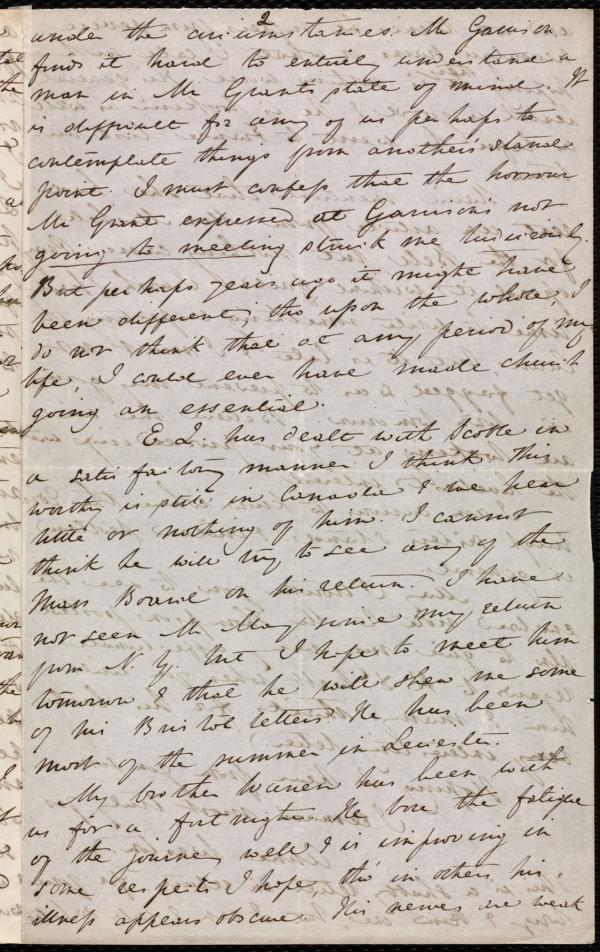 2
under the circumstances. Mr Garrison
finds it hard to entirely understand a
man in Mr Grants state of mind. It
is difficult for any of us perhaps to
contemplate things from another's stand
point. I must confess that the horrour
Mr Grant expressed at Garrisons not
going to meeting struck me ludicrously.
But perhaps years ago it might have
been different; tho upon the whole, I
do not think that at any period of my
life, I could ever have made church
going an essential.
E L has dealt with Scoble in
a satisfactory manner I think This
worthy is still in Canada & we hear
little or nothing of him. I cannot
think he will try to see any of the
Mass Board on his return. I have
not seen Mr May since my return
from N. Y. but I hope to meet him
tomorrow & that he will shew me some
of his Bristol letters He has been
most of the summer in Leicester.
My brother Warren has been with
us for a fortnight. He bore the fatigue
of the journey well & is improving in
some respects I hope, tho' in others his
illness appears obscure. His nerves are weak